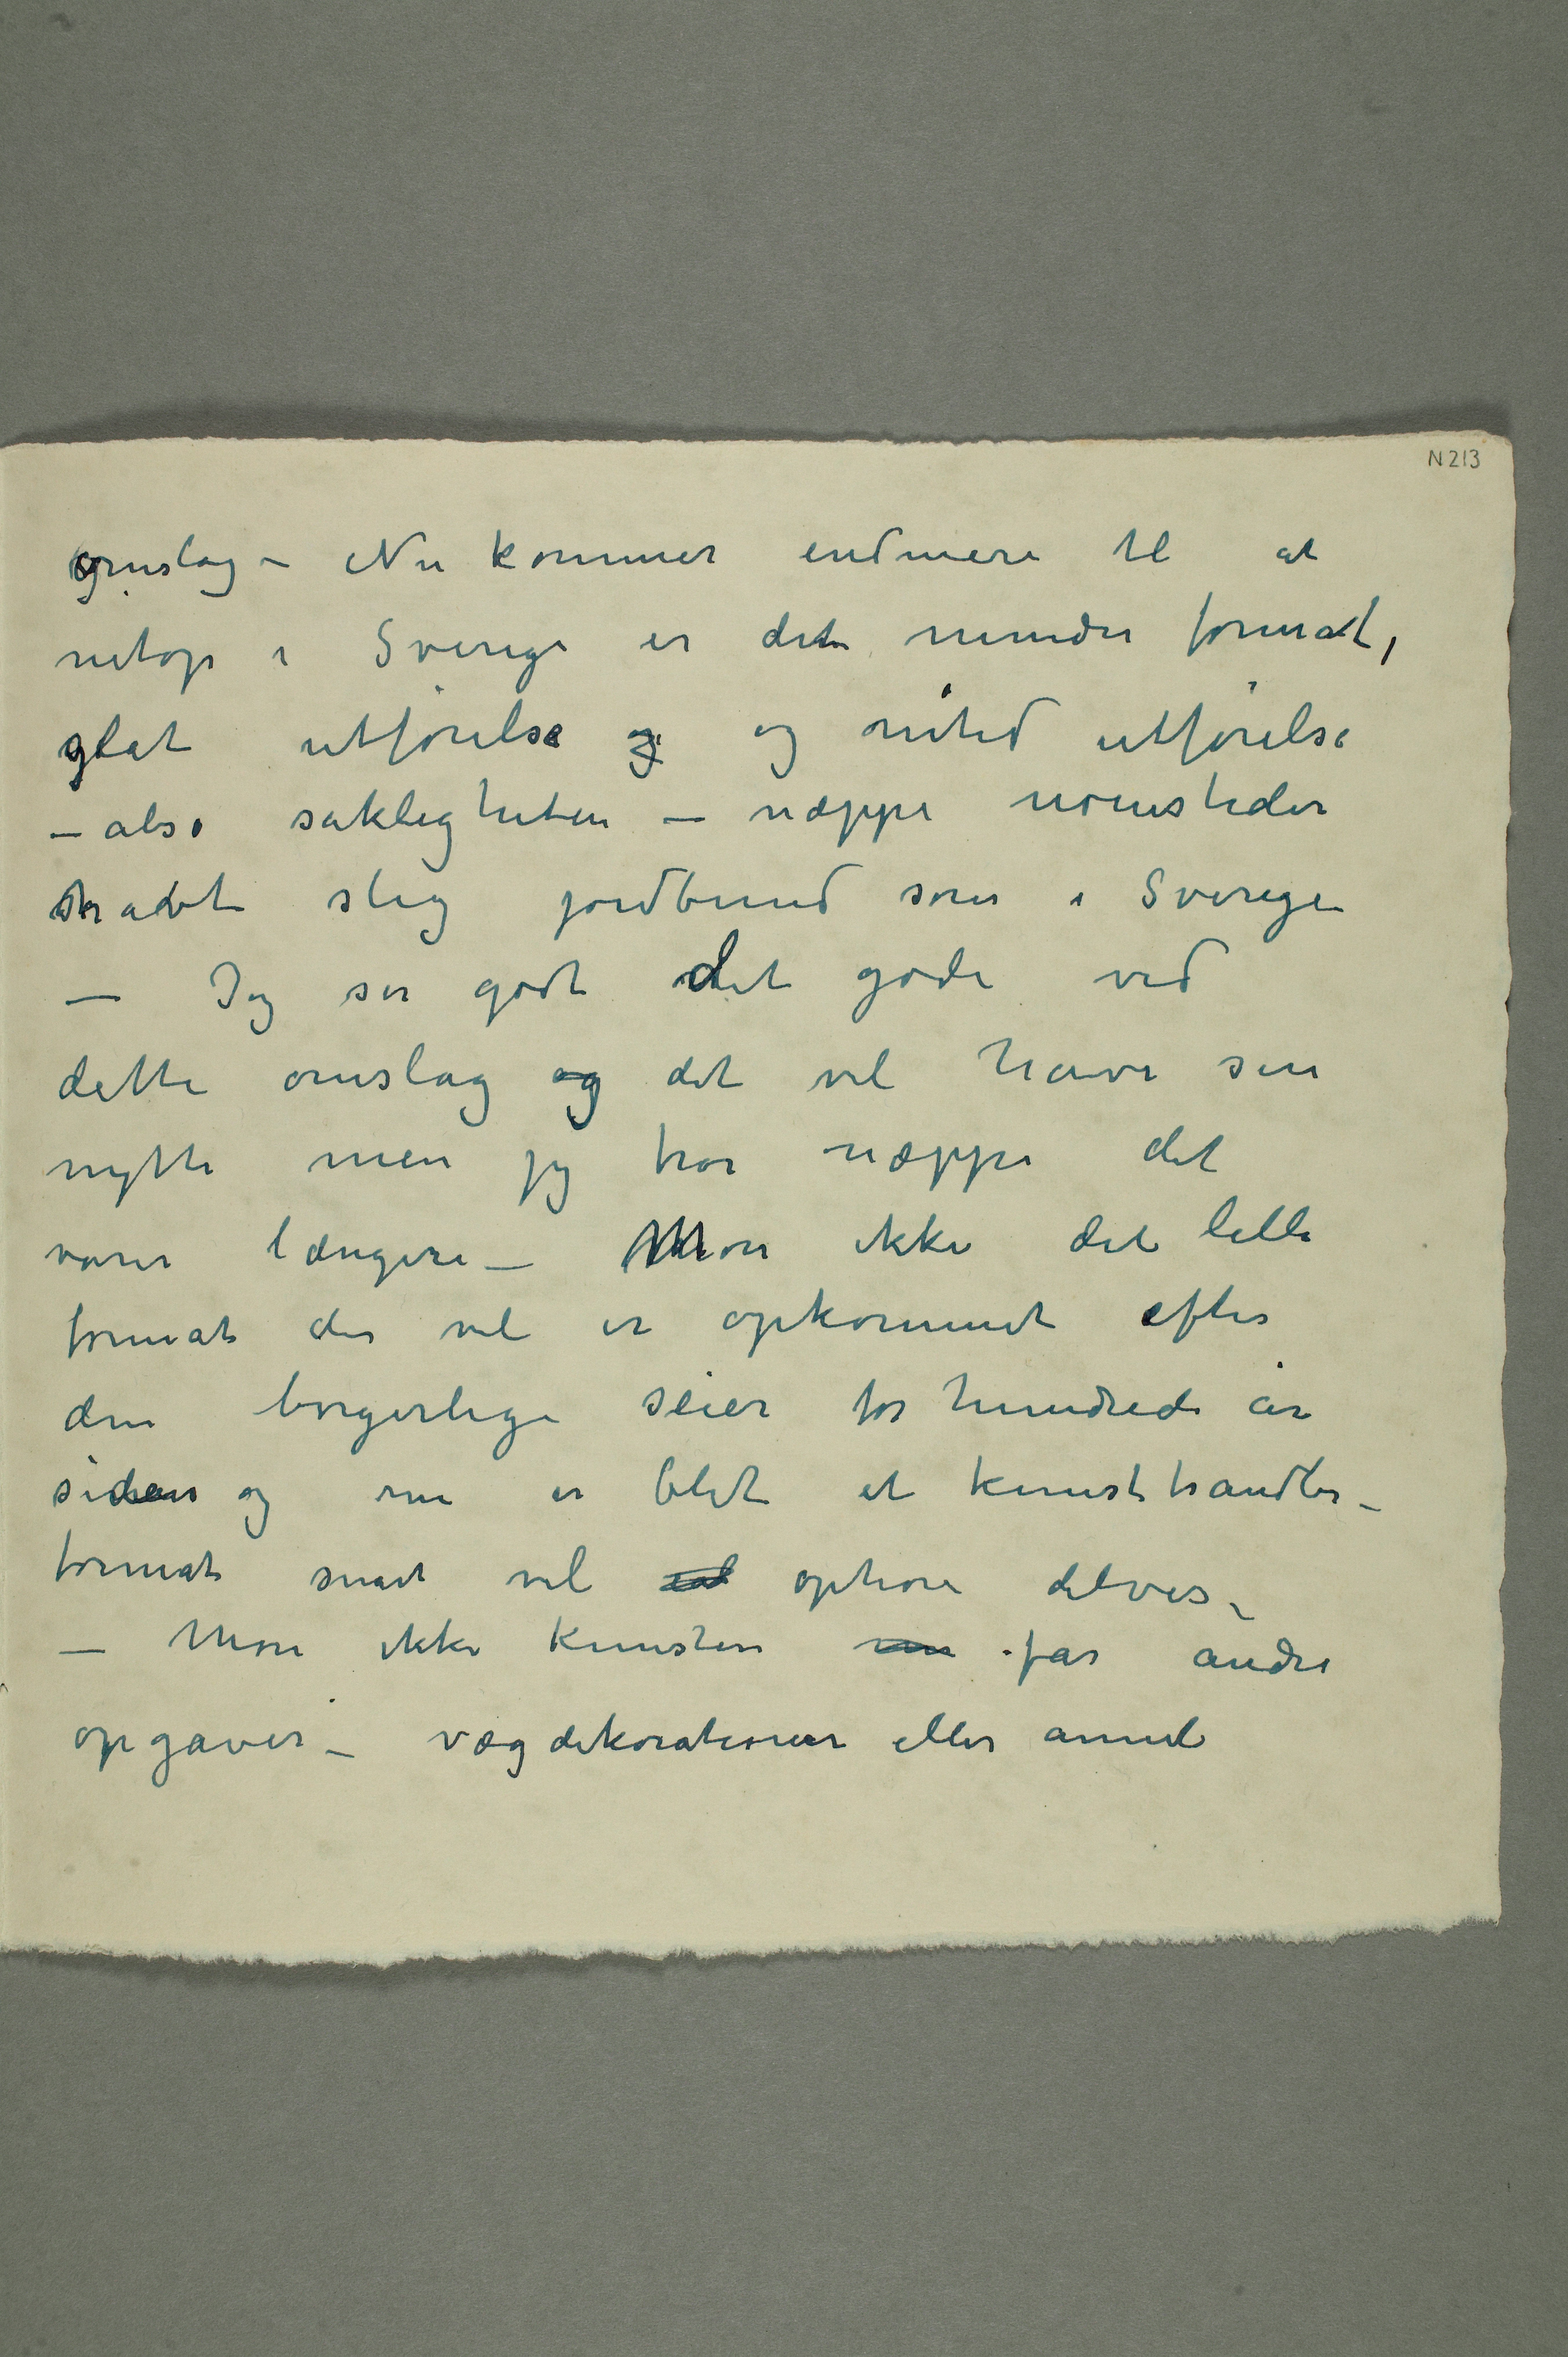 N 213
omslag – Nu kommer endmere til at
netop i Sverige er det mindre format,
glat utførelse og og nitid utførelse
– also sakligheten – næppe noensteder
havt slig jordbund som i Sverige
– Jeg ser godt det gode ved
dette omslag og det vil have sin
nytte men jeg tror næppe det
varer længere – Mon ikke det lille
format der vel er opkommet efter
den borgerlige seier for hundrede år
siden og nu er blet et kunsthandler–
format snart vil ophøre delvis –
– Mon ikke kunsten nu får andre
opgaver – vægdekorationer eller annet